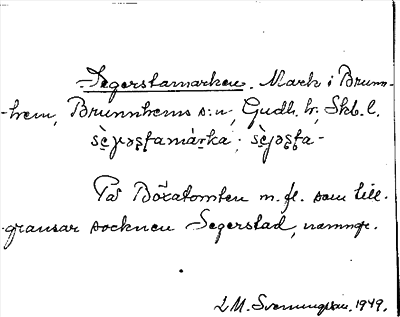 Segerstamarken. Mark i Brunn-
-hem, Brunnhems s:n, Gudh. hd, Skb. l.
sè̠gərs̩t̩amár̠ka ; sèjəs̩t̩a-
På Böxatomten m. fl. som till.
gränsar socknen Segerstad, nämnge.
L. M. Svenungsson. 1949.